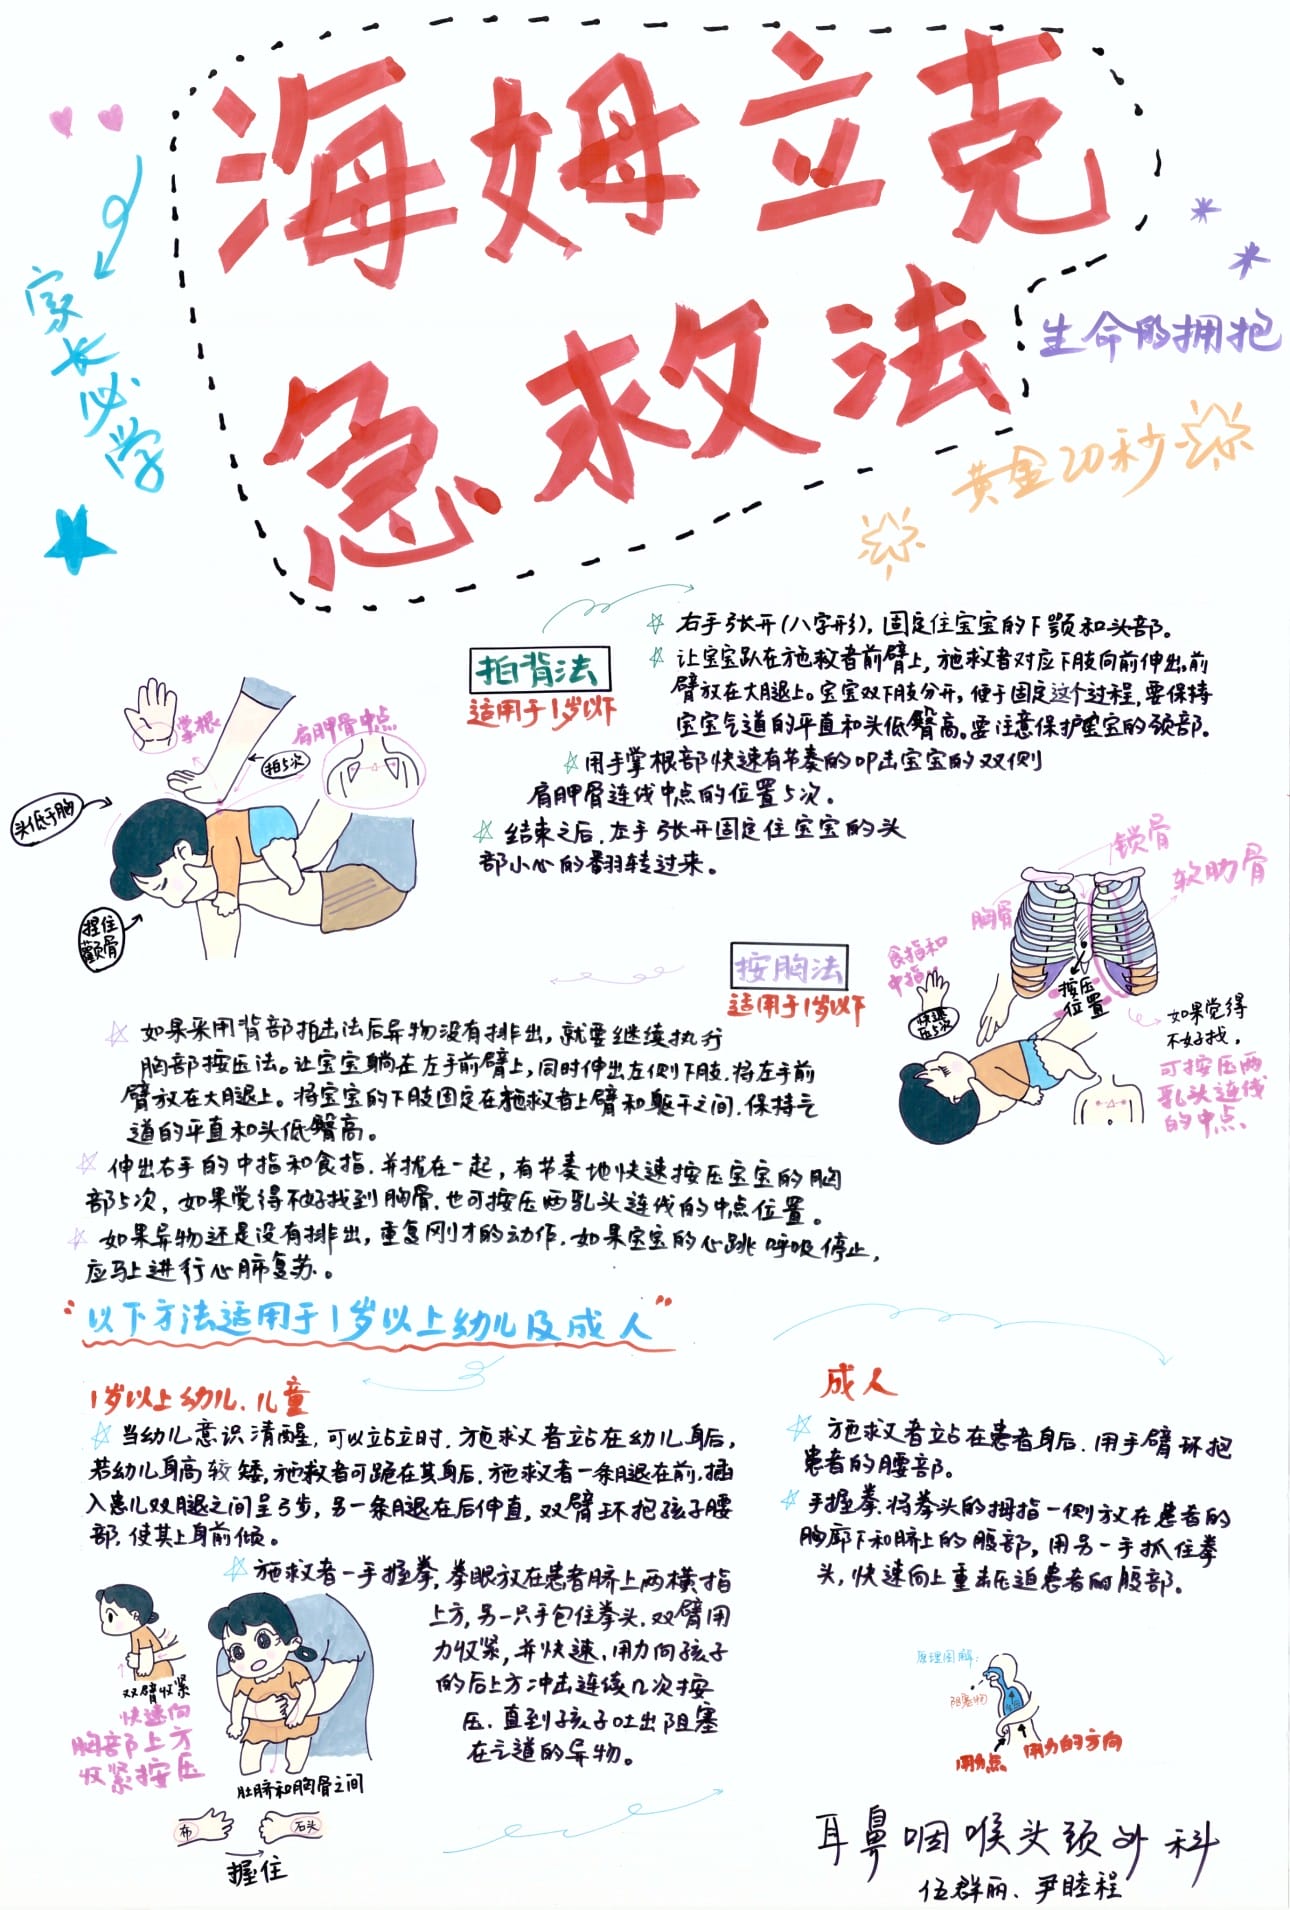 海姆立克
急救法
家长必学
生命的拥抱
黄金20秒
拍背法
适用于1岁以下
右手张开(八字形),固定住宝宝的下颚和头部。
让宝宝趴在施救者前臂上,施救者对应下肢向前伸出,前
臂放在大腿上。宝宝双下肢分开,便于固定这个过程,要保持
宝宝气道的平直和头低臀高。要注意保护宝宝的颈部。
用手掌根部快速有节奏的叩击宝宝的双侧
肩胛骨连线中点的位置5次。
结束之后,左手张开固定住宝宝的头
部小心的翻转过来。
掌根
肩胛骨中点
拍5次
头低于胸
捏住
颧骨
锁骨
软肋骨
胸骨
食指和
中指
快速
压5次
按压
位置
如果觉得
不好找,
可按压两
乳头连线
的中点、
按胸法
适用于1岁以下
如果采用背部拍击法后异物没有排出,就要继续执行
胸部按压法。让宝宝躺在左手前臂上,同时伸出左侧下肢,将左手前
臂放在大腿上。将宝宝的下肢固定在施救者上臂和躯干之间,保持气
道的平直和头低臀高。
伸出右手的中指和食指,并拢在一起,有节奏地快速按压宝宝的胸
部5次,如果觉得不好找到胸骨,也可按压两乳头连线的中点位置。
如果异物还是没有排出,重复刚才的动作,如果宝宝的心跳呼吸停止,
应马上进行心肺复苏。
“以下方法适用于1岁以上幼儿及成人”
1岁以上幼儿、儿童
当幼儿意识清醒,可以站立时,施救者站在幼儿身后,
若幼儿身高较矮,施救者可跪在其身后,施救者一条腿在前,插
入患儿双腿之间呈弓步,另一条腿在后伸直,双臂环抱孩子腰
部,使其上身前倾。
施救者一手握拳,拳眼放在患者脐上两横指
上方,另一只手包住拳头,双臂用
力收紧,并快速,用力向孩子
的后上方冲击连续几次按
压,直到孩子吐出阻塞
在气道的异物。
双臂收紧
快速向
胸部上方
收紧按压
肚脐和胸骨之间
布
石头
握住
成人
施救者站在患者身后,用手臂环抱
患者的腰部。
手握拳,将拳头的拇指一侧放在患者的
胸廓下和脐上的腹部,用另一手抓住拳
头,快速向上重击压迫患者的腹部。
原理图解:
阻塞物
用力点
用力的方向
耳鼻咽喉头颈外科
伍群丽、尹睦程